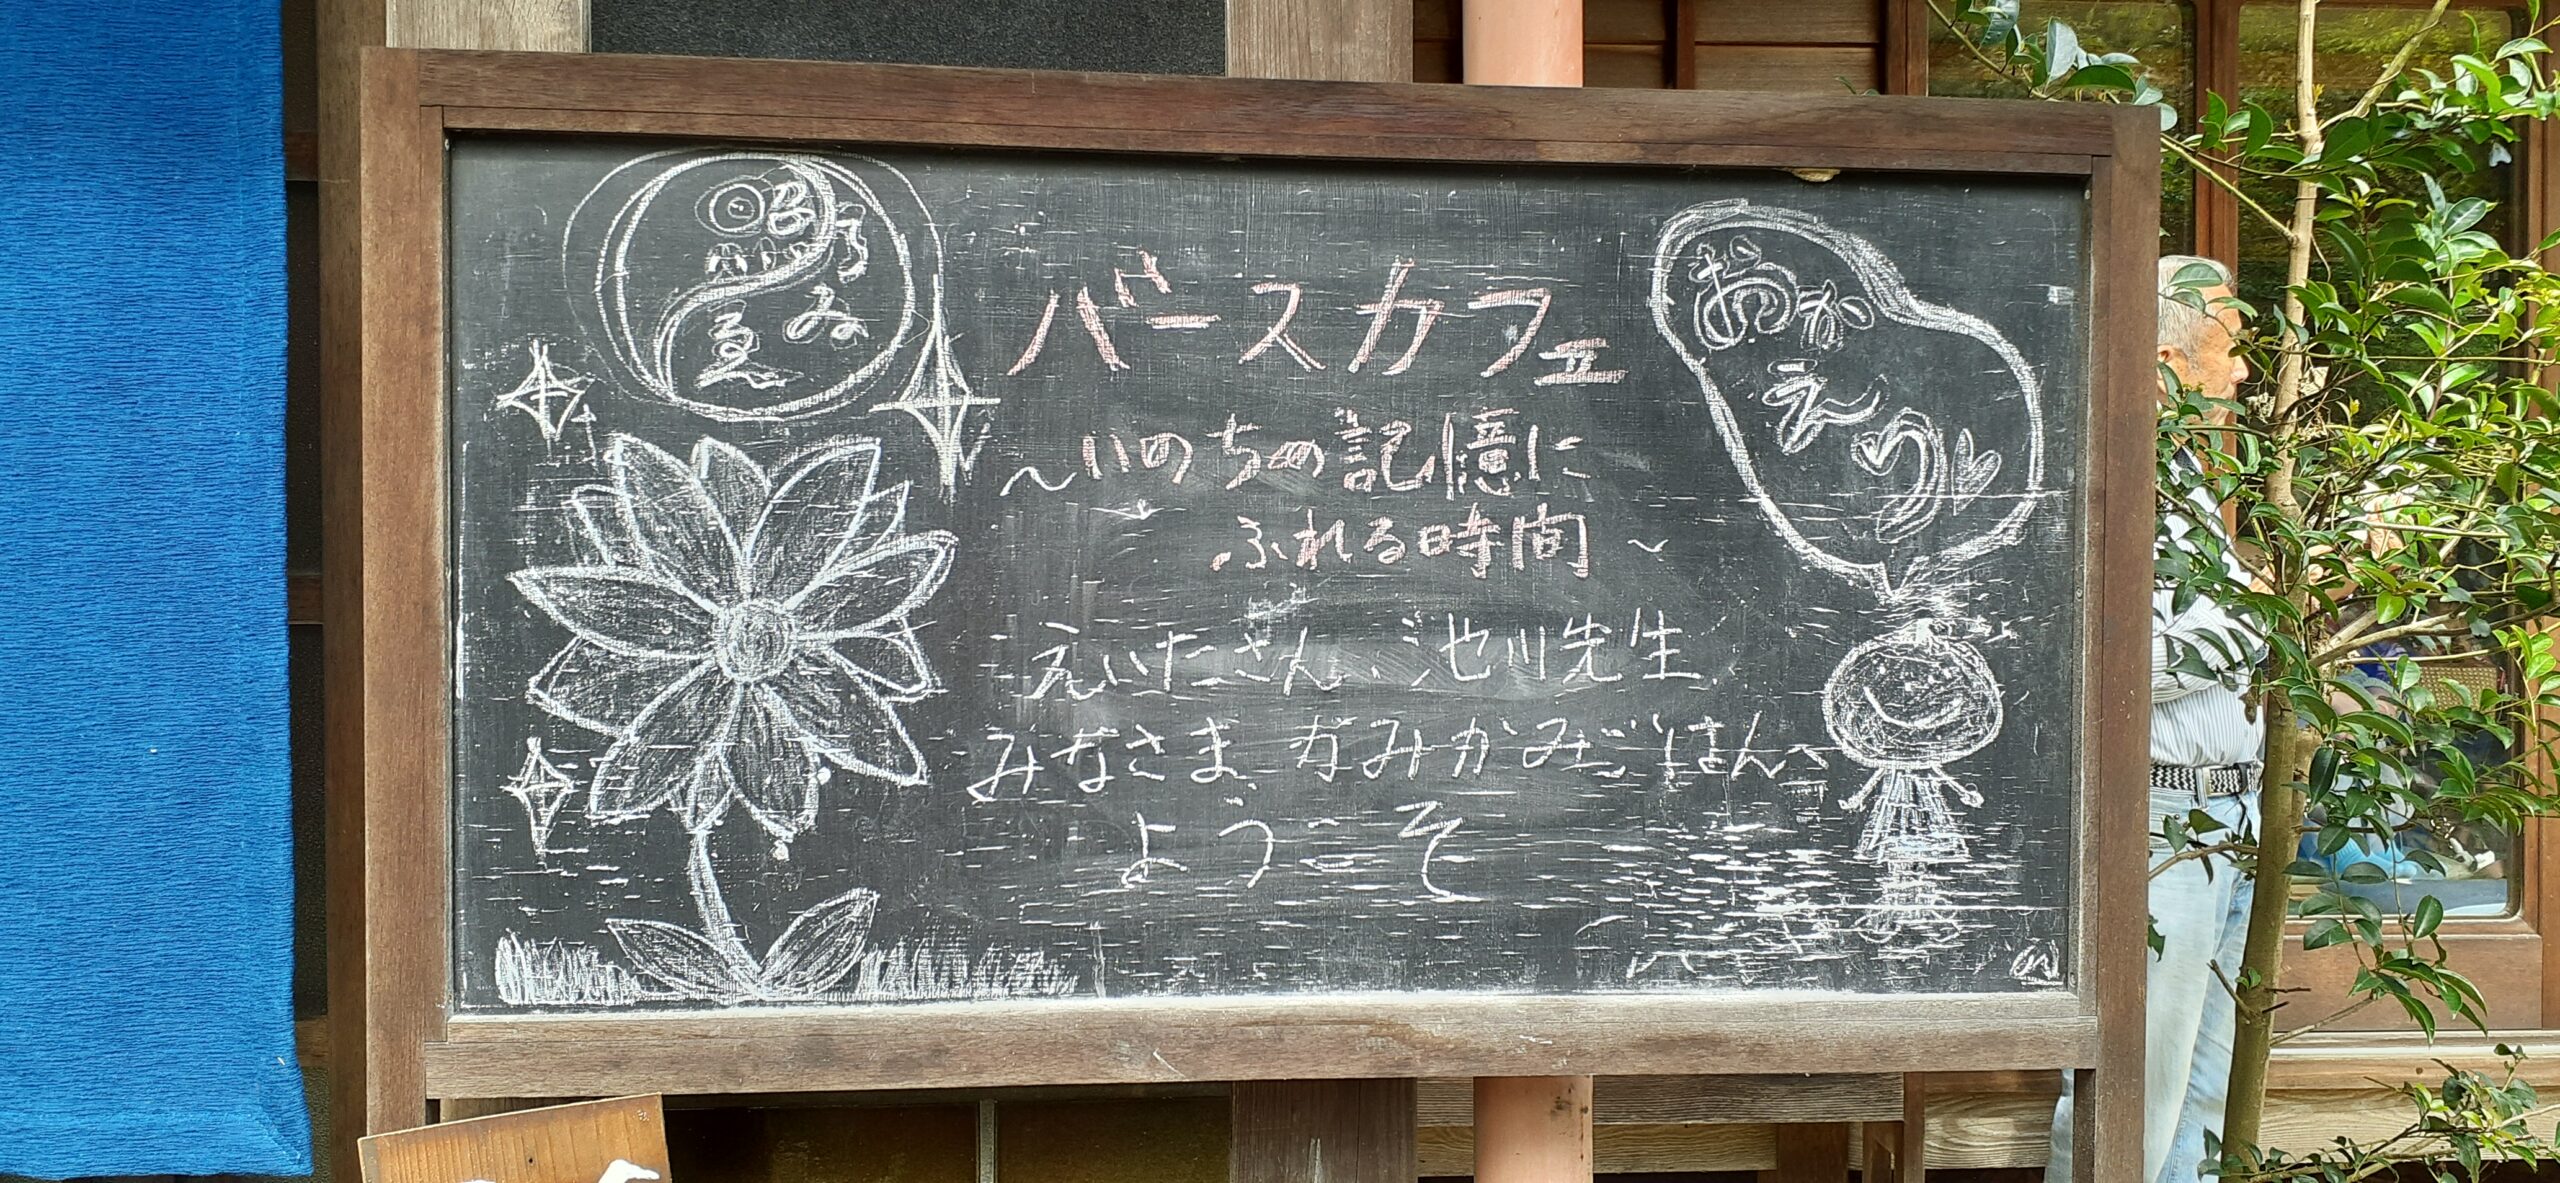 バースカフェ
～いのちの記憶に
ふれる時間～
えいたさん、池川先生
みなさま、かみかみごはんへ
ようこそ
おか
えり